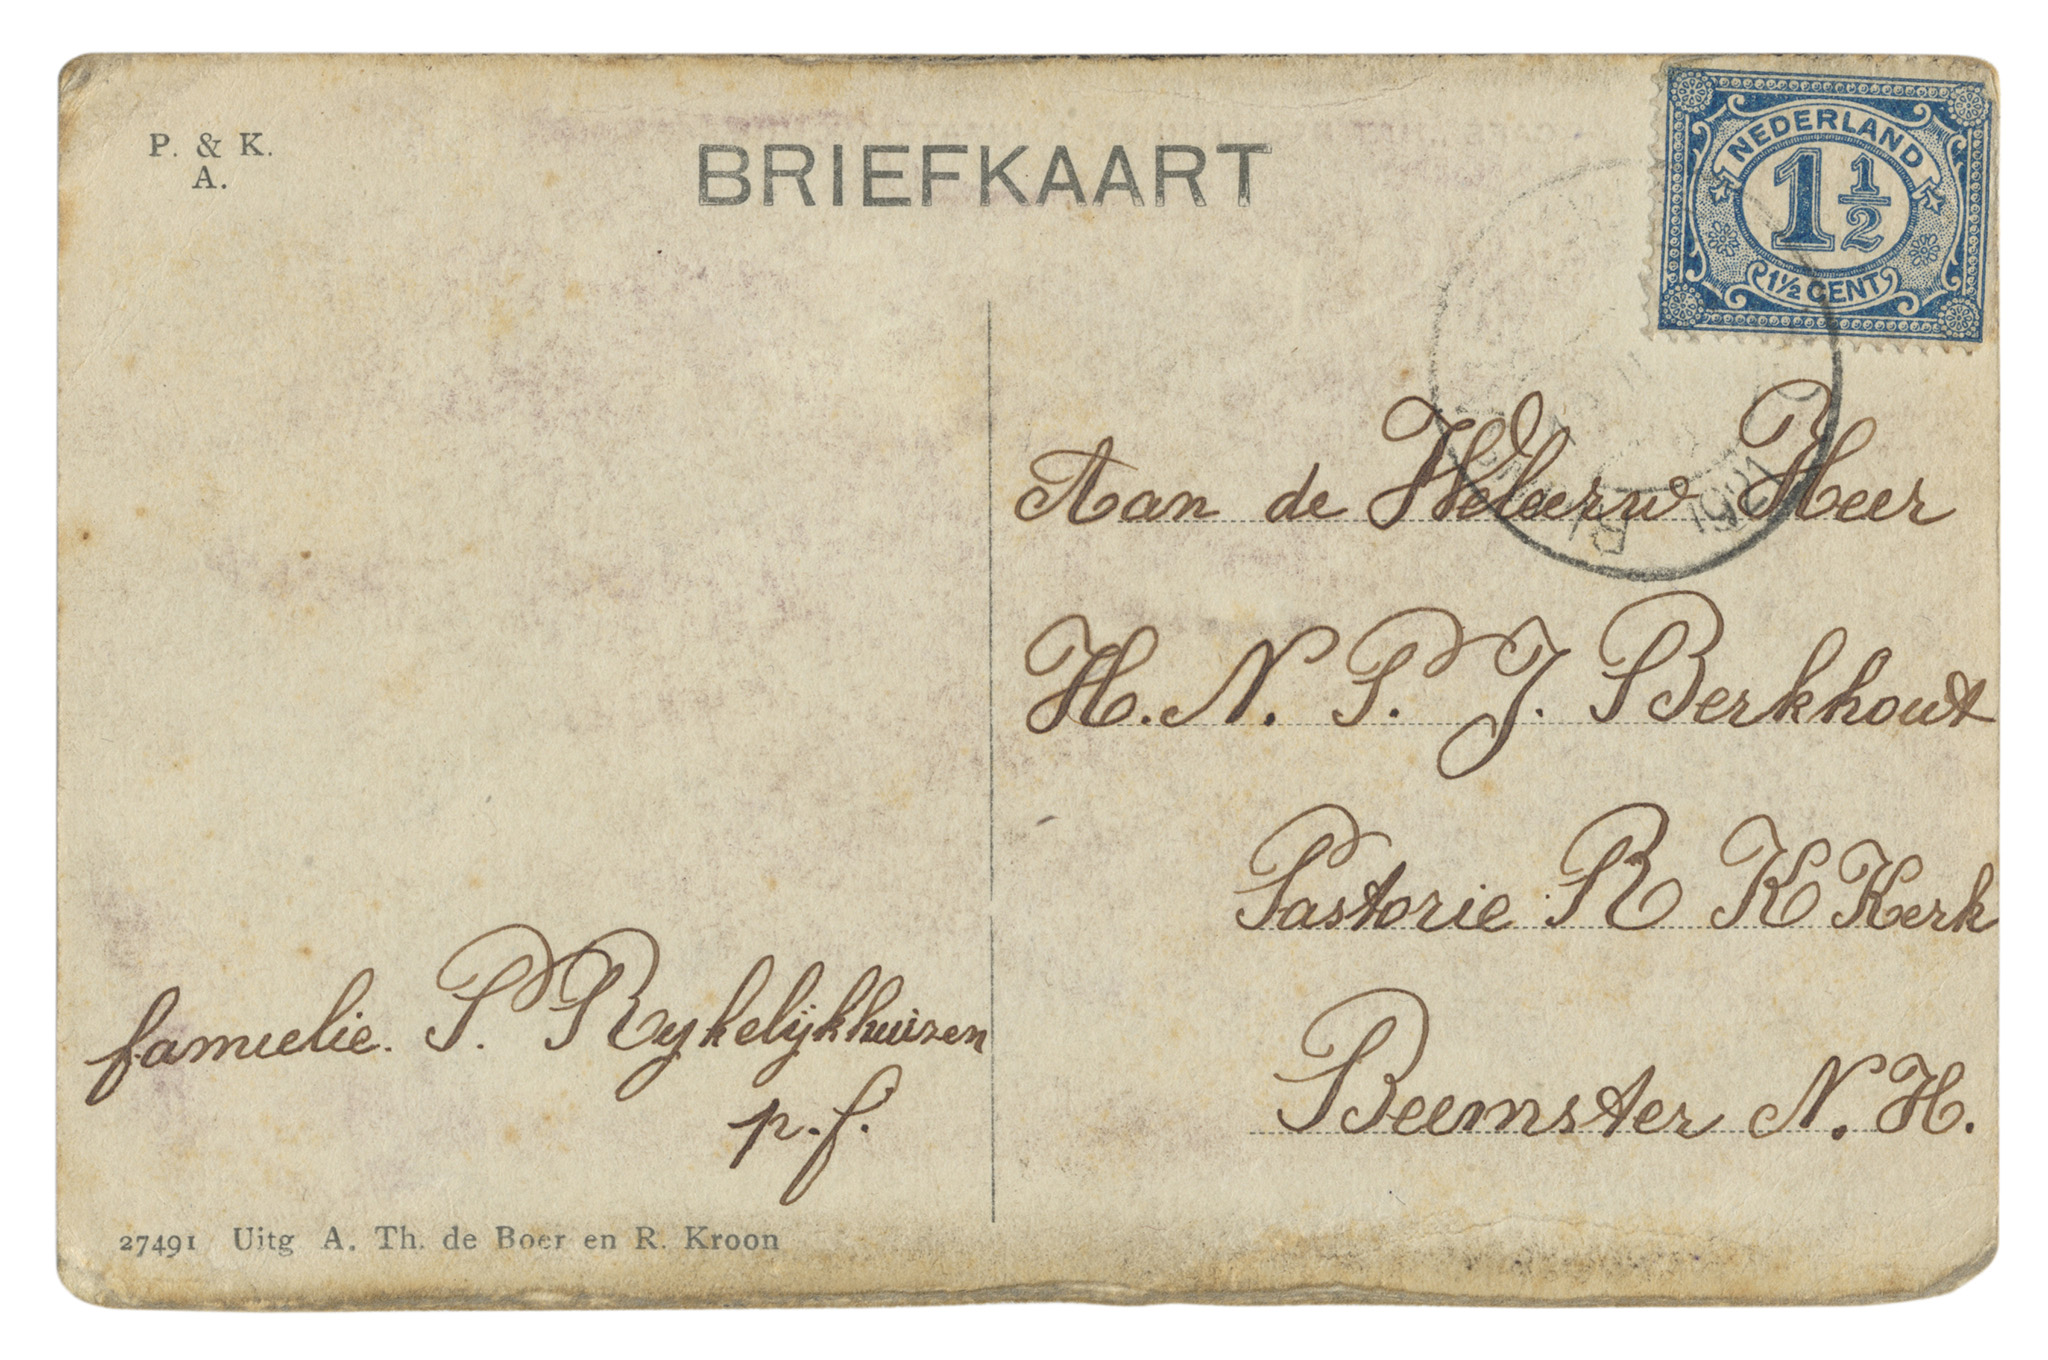 P. & K.
A.
BRIEFKAART
NEDERLAND
1 1/2
1½ CENT
Aan de Weleerw Heer
H. N. P. J. Berkhout
Pastorie R K Kerk
Beemster N. H.
famielie. P. Rykelijkhuizen
p.f.
27491 Uitg A. Th. de Boer en R. Kroon